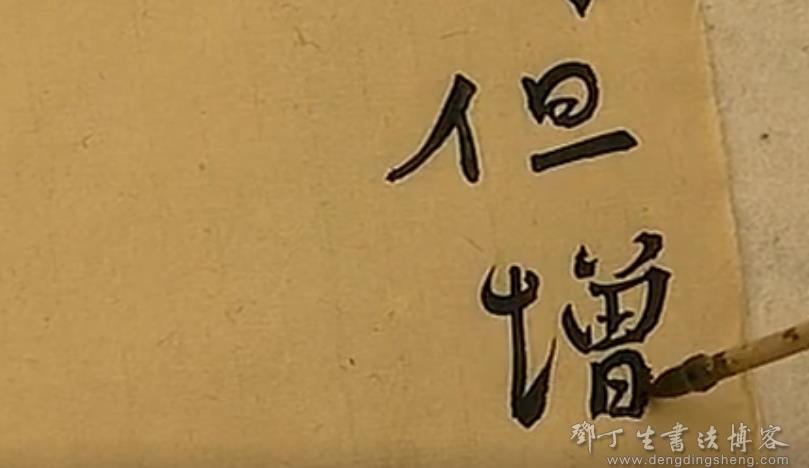 但增
鄧丁生書法博客
www.dengdingsheng.com